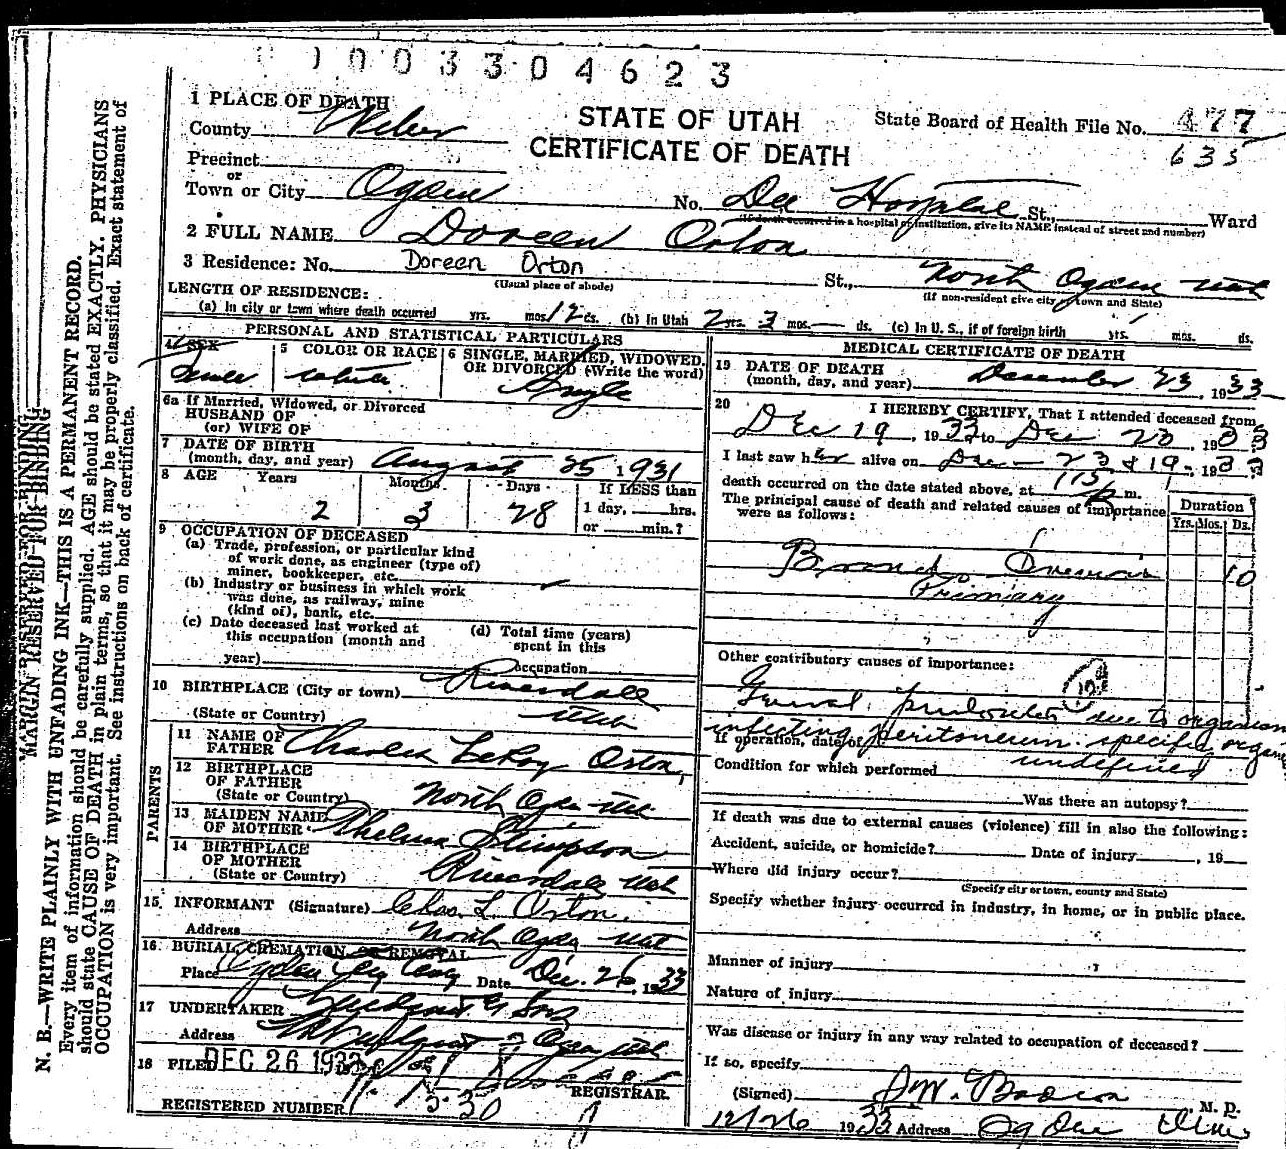 1003304623
1 PLACE OF DEATH
County Weber
STATE OF UTAH
CERTIFICATE OF DEATH
State Board of Health File No. 477
635
Precinct
or
Town or City Ogden No. Dee Hospital St., Ward
(If death occurred in a hospital or institution, give its NAME instead of street and number)
2 FULL NAME Doreen Orton
3 Residence: No. Doreen Orton St., North Ogden Utah
(Usual place of abode) (If non-resident give city or town and State)
LENGTH OF RESIDENCE:
(a) In city or town where death occurred yrs. mos. 12 ds. (b) In Utah 2 yrs. 3 mos. — ds. (c) In U. S., if of foreign birth yrs. mos. ds.
PERSONAL AND STATISTICAL PARTICULARS
4 SEX
5 COLOR OR RACE
6 SINGLE, MARRIED, WIDOWED, OR DIVORCED (Write the word)
white Single
6a If Married, Widowed, or Divorced
HUSBAND OF
(or) WIFE OF
7 DATE OF BIRTH
(month, day, and year) August 25 1931
8 AGE Years Months Days If LESS than
1 day, hrs.
or min.?
2 3 28
9 OCCUPATION OF DECEASED
(a) Trade, profession, or particular kind
of work done, as engineer (type of)
miner, bookkeeper, etc.
(b) Industry or business in which work
was done, as railway, mine
(kind of), bank, etc.
(c) Date deceased last worked at
this occupation (month and
year)
(d) Total time (years)
spent in this
occupation
10 BIRTHPLACE (City or town) Riverdale
(State or Country) Utah
PARENTS
11 NAME OF
FATHER Charles LeRoy Orton
12 BIRTHPLACE
OF FATHER
(State or Country) North Ogden Utah
13 MAIDEN NAME
OF MOTHER Thelma Stimpson
14 BIRTHPLACE
OF MOTHER
(State or Country) Riverdale Utah
15. INFORMANT (Signature) Chas. L. Orton.
Address North Ogden Utah
16. BURIAL, CREMATION OR REMOVAL
Place Ogden City Cem Date Dec. 26, 1933
17 UNDERTAKER & Sons
Address Ogden Utah
18 FILED DEC 26 1933
REGISTRAR.
REGISTERED NUMBER 530
MEDICAL CERTIFICATE OF DEATH
19 DATE OF DEATH
(month, day, and year) December 23, 1933
20 I HEREBY CERTIFY, That I attended deceased from
Dec 19, 1933 to Dec 23, 1933
I last saw her alive on Dec 23 1933
death occurred on the date stated above, at 115 m.
The principal cause of death and related causes of importance
were as follows:
Duration
Yrs. Mos. Ds.
Broncho Pneumonia 10
Primary
Other contributory causes of importance:
General Peritonitis due to organism
infecting peritoneum specific organism
undefined
If operation, date of
Condition for which performed
Was there an autopsy?
If death was due to external causes (violence) fill in also the following:
Accident, suicide, or homicide? Date of injury , 19
Where did injury occur?
(Specify city or town, county and State)
Specify whether injury occurred in industry, in home, or in public place.
Manner of injury
Nature of injury
Was disease or injury in any way related to occupation of deceased?
If so, specify
(Signed) M. D.
12/26 1933 Address Ogden Utah
MARGIN RESERVED FOR BINDING
N. B.—WRITE PLAINLY WITH UNFADING INK—THIS IS A PERMANENT RECORD.
Every item of information should be carefully supplied. AGE should be stated EXACTLY. PHYSICIANS
should state CAUSE OF DEATH in plain terms, so that it may be properly classified. Exact statement of
OCCUPATION is very important. See instructions on back of certificate.